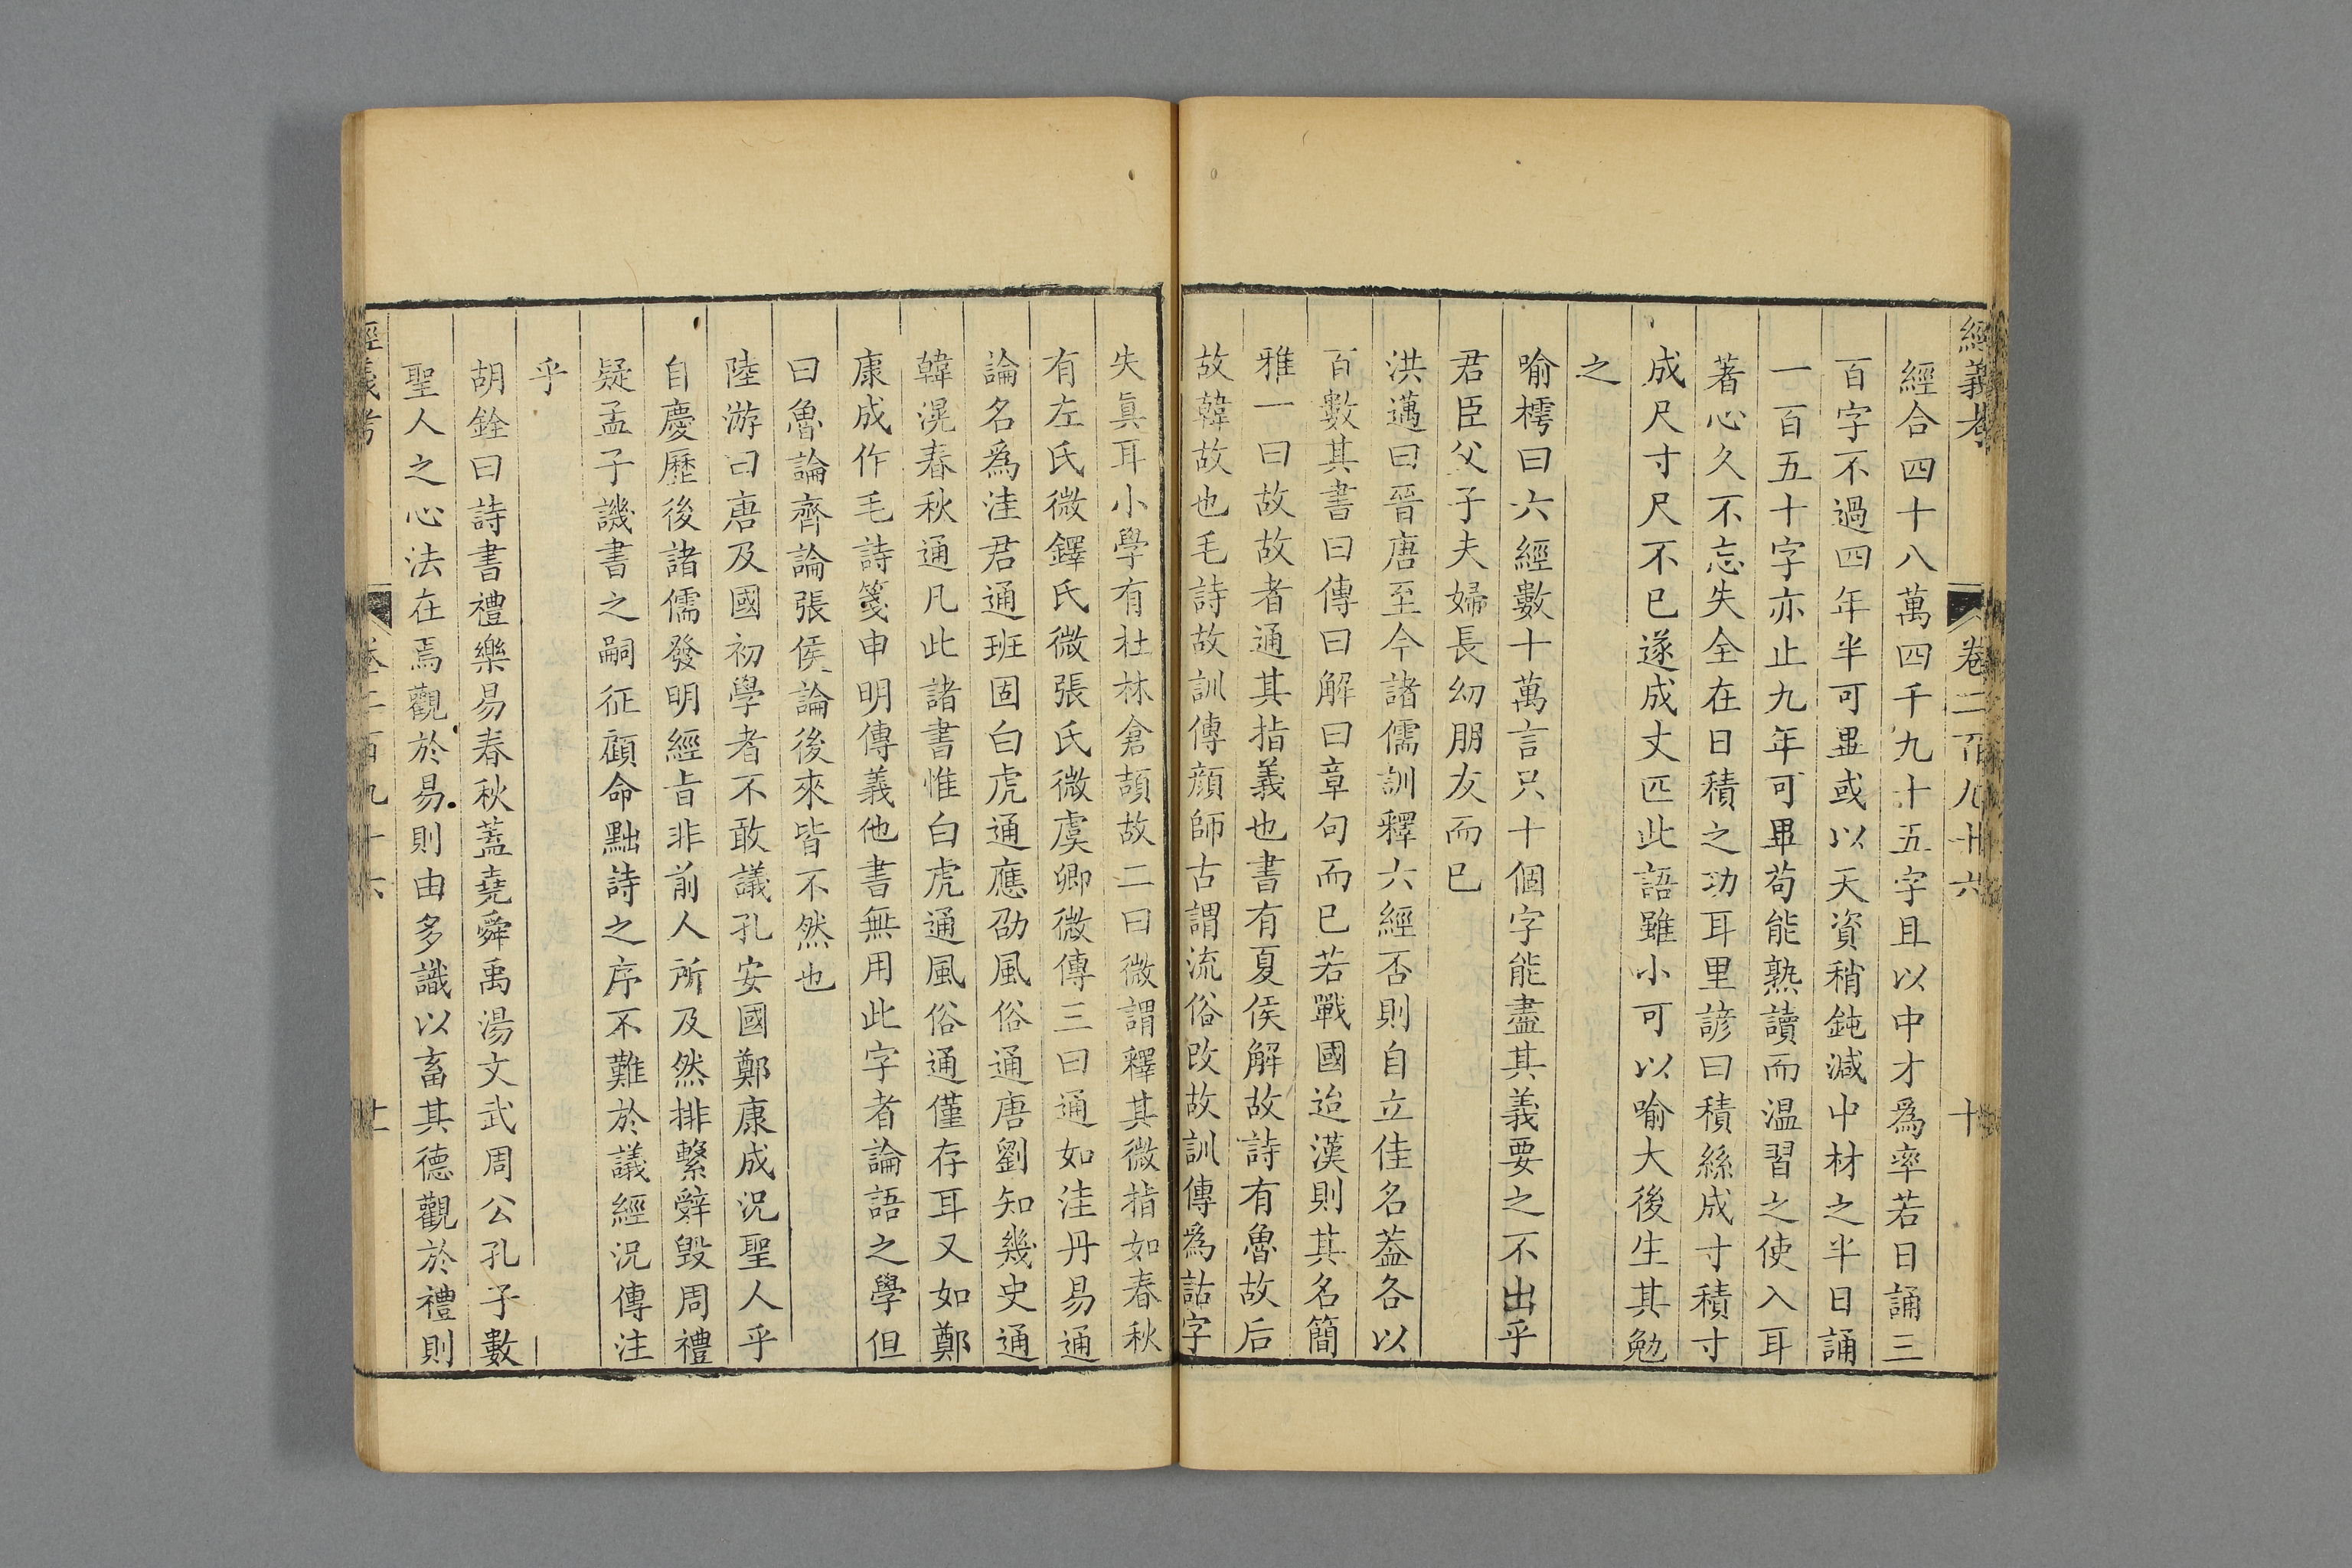 經義考 卷二百九十六 十
經合四十八萬四千九十五字且以中才爲率若日誦三
百字不過四年半可畢或以天資稍鈍減中材之半日誦
一百五十字亦止九年可畢苟能熟讀而温習之使入耳
著心久不忘失全在日積之功耳里諺曰積絲成寸積寸
成尺寸尺不已遂成丈匹此語雖小可以喻大後生其勉
之
喻樗曰六經數十萬言只十個字能盡其義要之不出乎
君臣父子夫婦長幼朋友而已
洪邁曰晉唐至今諸儒訓釋六經否則自立佳名蓋各以
百數其書曰傳曰解曰章句而已若戰國迨漢則其名簡
雅一曰故故者通其指義也書有夏侯解故詩有魯故后
故韓故也毛詩故訓傳顏師古謂流俗改故訓傳爲詁字
失眞耳小學有杜林倉頡故二曰微謂釋其微指如春秋
有左氏微鐸氏微張氏微虞卿微傳三曰通如洼丹易通
論名爲洼君通班固白虎通應劭風俗通唐劉知幾史通
韓滉春秋通凡此諸書惟白虎通風俗通僅存耳又如鄭
康成作毛詩箋申明傳義他書無用此字者論語之學但
曰魯論齊論張侯論後來皆不然也
陸游曰唐及國初學者不敢議孔安國鄭康成況聖人乎
自慶歷後諸儒發明經旨非前人所及然排繫辭毁周禮
疑孟子譏書之嗣征顧命黜詩之序不難於議經況傳注
乎
胡銓曰詩書禮樂易春秋蓋堯舜禹湯文武周公孔子數
聖人之心法在焉觀於易則由多識以畜其德觀於禮則
經義考 卷二百九十六 十一